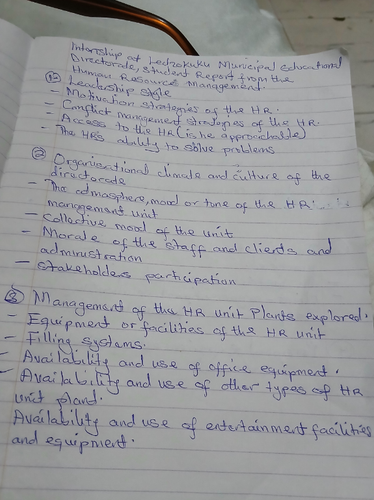 Internship at Ledzokuku Municipal Educational
Directorate, student Report from the
Human Resource Management.
① Leadership style
- Motivation strategies of the HR.
- Conflict management strategies of the HR.
- Access to the HR (is he approachable)
- The HR's ability to solve problems
② Organisational climate and culture of the
directorate
- The admasphere, mood or tone of the HR
management unit
- Collective mood of the unit
- Morale of the staff and clients and
administration
- Stakeholders participation
③ Management of the HR unit Plants explored.
- Equipment or facilities of the HR unit
- Filling systems.
- Availability and use of office equipment.
- Availability and use of other types of HR
unit plant.
Availability and use of entertainment facilities
and equipment.